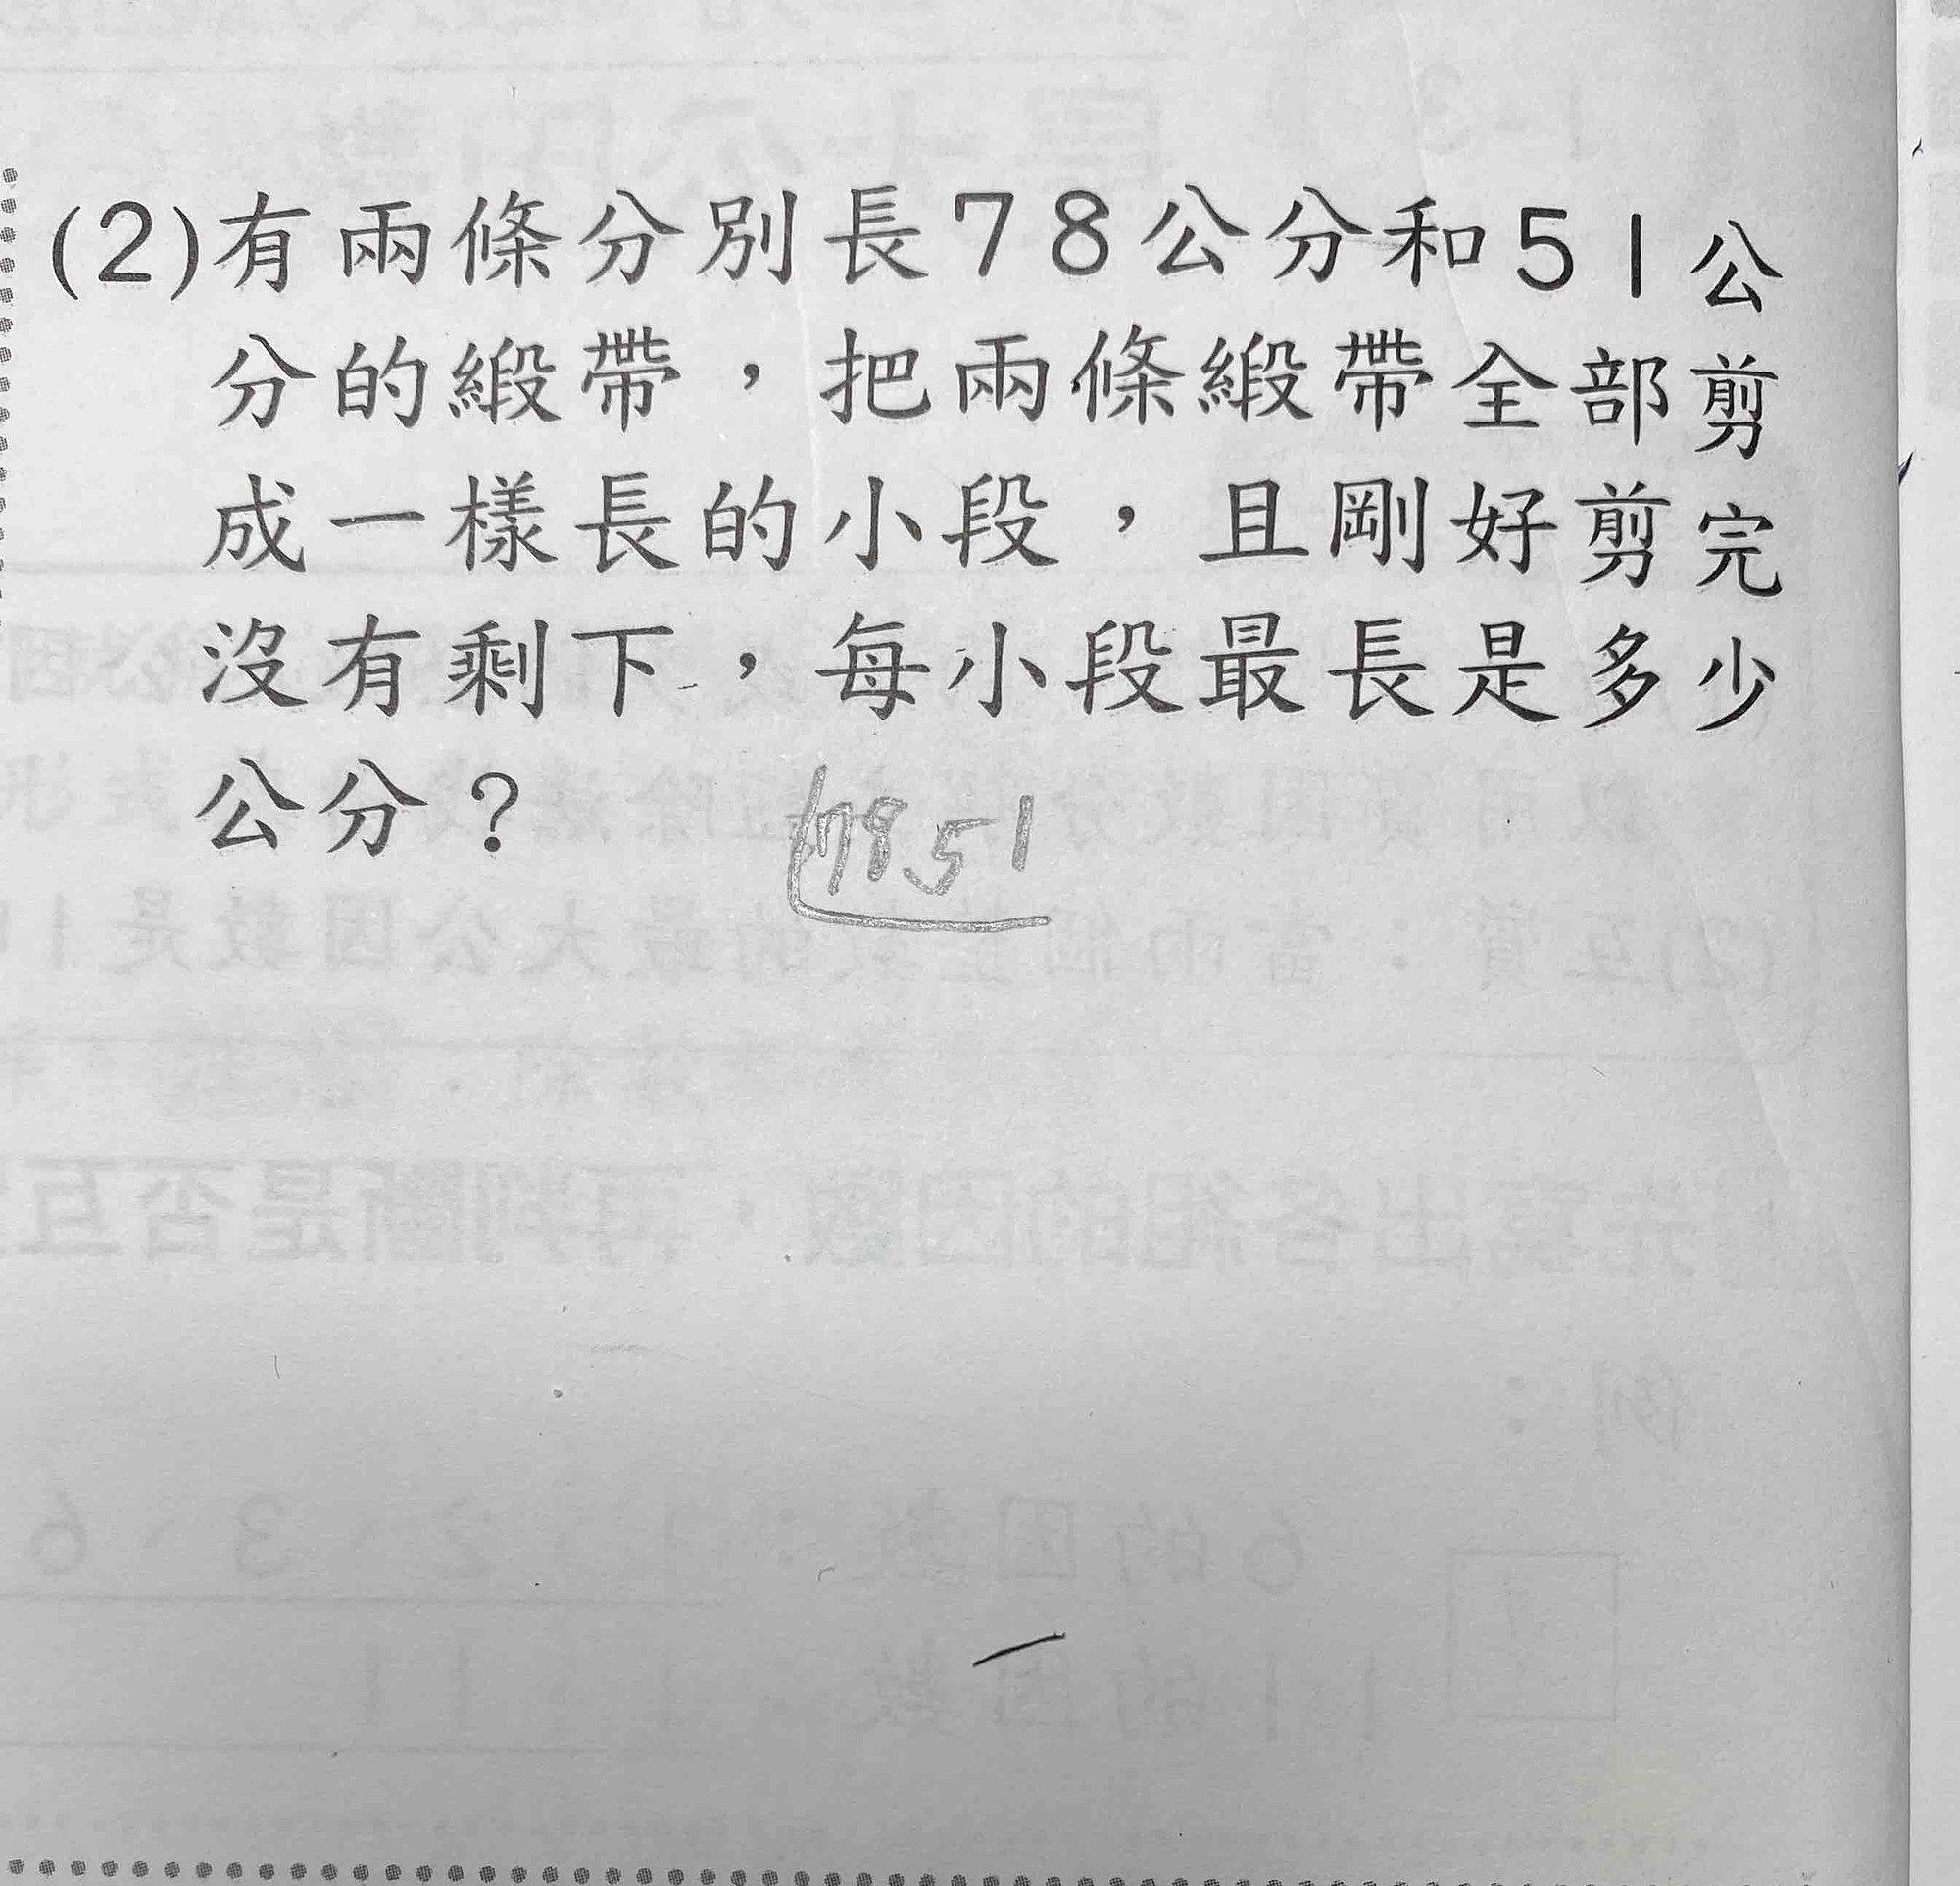 (2)有兩條分別長78公分和51公
分的緞帶，把兩條緞帶全部剪
成一樣長的小段，且剛好剪完
沒有剩下，每小段最長是多少
公分？
78 51